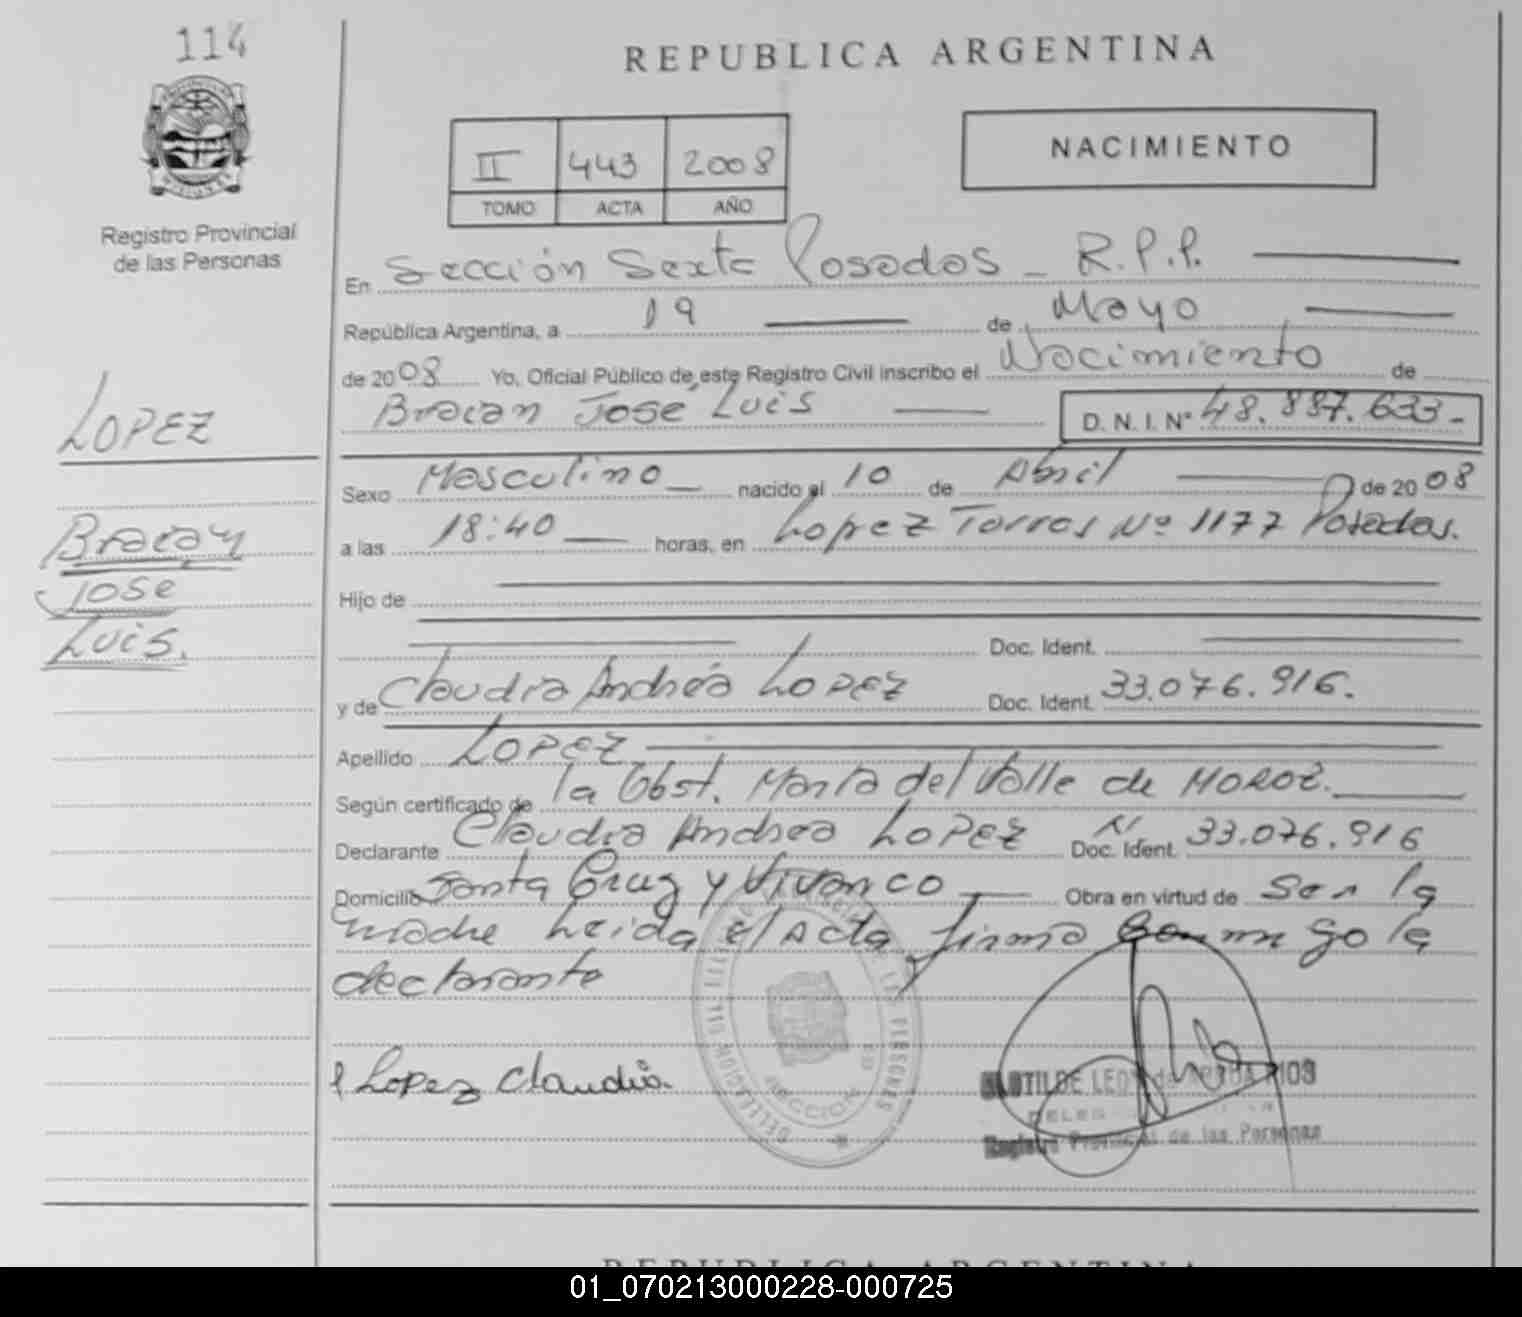 114
Registro Provincial
de las Personas
LOPEZ
Braian
Jose
Luis.
REPUBLICA ARGENTINA
II 443 2008
TOMO ACTA AÑO
NACIMIENTO
En Sección Sexta Posadas - R.P.P.
República Argentina, a 19 de Mayo
de 2008 Yo, Oficial Público de este Registro Civil inscribo el Nacimiento de
Braian José Luis D. N. I. Nº 48.887.633-
Sexo Masculino nacido el 10 de Abril de 2008
a las 18:40 horas, en Lopez Torres Nº 1177 Posadas.
Hijo de
Doc. Ident.
y de Claudia Andréa LOPEZ Doc. Ident. 33.076.916.
Apellido LOPEZ
Según certificado de la Obst. María del Valle de MOROZ.
Declarante Claudia Andrea LOPEZ Doc. Ident. 33.076.916
Domicilio Santa Cruz y Vivanco Obra en virtud de ser la
madre Leida el Acta, firma conmigo la
declarante
Lopez Claudia.
Registro Provincial de las Personas
REPUBLICA ARGENTINA
01_070213000228-000725